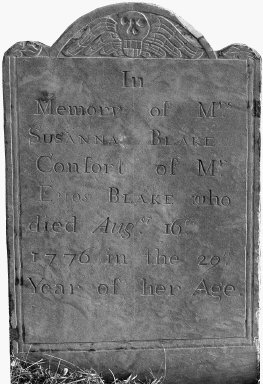 In
Memory of Mrs
SUSANNAH BLAKE
Confort of Mr
ENOS BLAKE who
died Augst 16th
1776 in the 29th
Year of her Age.